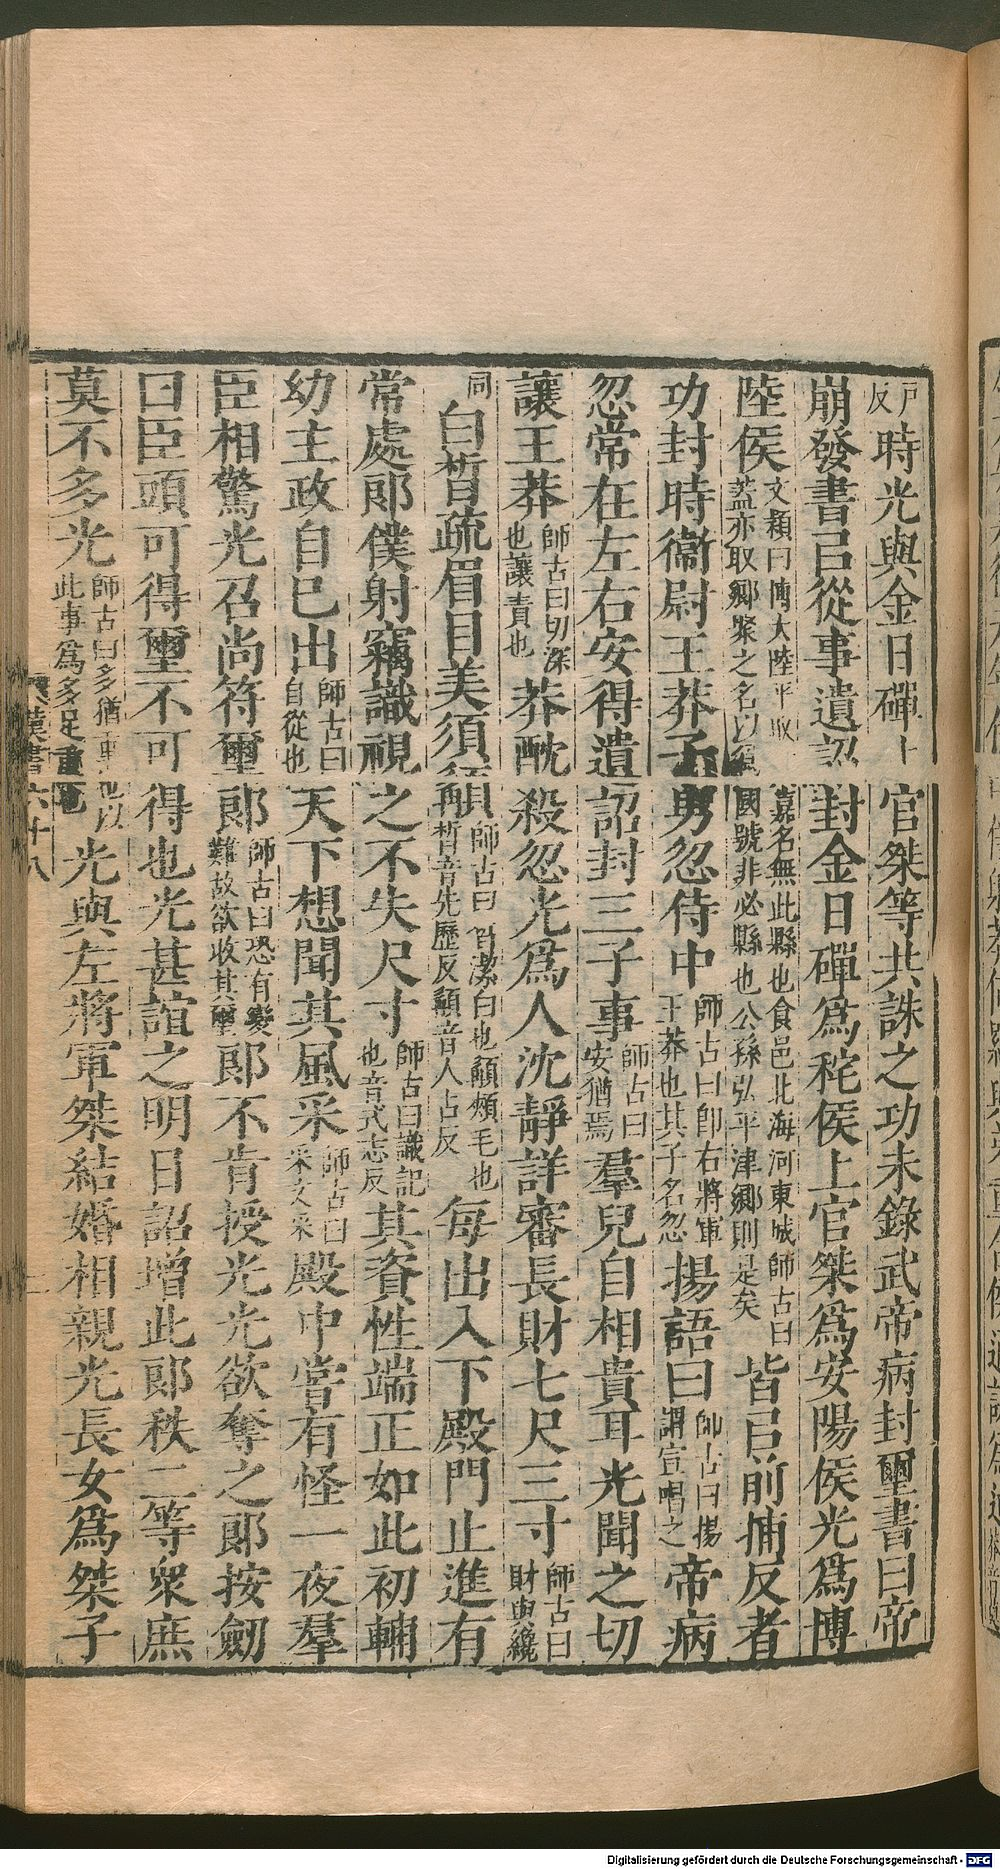 戶反時光與金日磾上官桀等共誅之功未錄武帝病封璽書曰帝
崩發書㠯從事遺詔封金日磾爲秺侯上官桀爲安陽侯光爲博
陸侯文穎曰博大陸平取其嘉名無此縣也食邑北海河東城師古曰蓋亦取鄉聚之名以爲國號非必縣也公孫弘平津鄉則是矣皆㠯前捕反者
功封時衞尉王莽子男忽侍中師古曰卽右將軍王莽也其子名忽揚語曰師古曰揚謂宣唱之帝病
忽常在左右安得遺詔封三子事師古曰安猶焉羣兒自相貴耳光聞之切
讓王莽師古曰切深也讓責也莽酖殺忽光爲人沈靜詳審長財七尺三寸師古曰財與纔
同白皙疏眉目美須髥師古曰皙潔白也顉頰毛也皙音先歷反顉音人占反每出入下殿門止進有
常處郎僕射竊識視之不失尺寸師古曰識記也音式志反其資性端正如此初輔
幼主政自已出師古曰自從也天下想聞其風采師古曰采文采殿中嘗有怪一夜羣
臣相驚光召尚符璽郎師古曰恐有變難故欲收其璽郎不肯授光光欲奪之郎按劒
曰臣頭可得璽不可得也光甚誼之明日詔增此郎秩二等衆庶
莫不多光師古曰多猶重也以此事爲多足重也光與左將軍桀結婚相親光長女爲桀子
漢書六十八
二
Digitalisierung gefördert durch die Deutsche Forschungsgemeinschaft - DFG